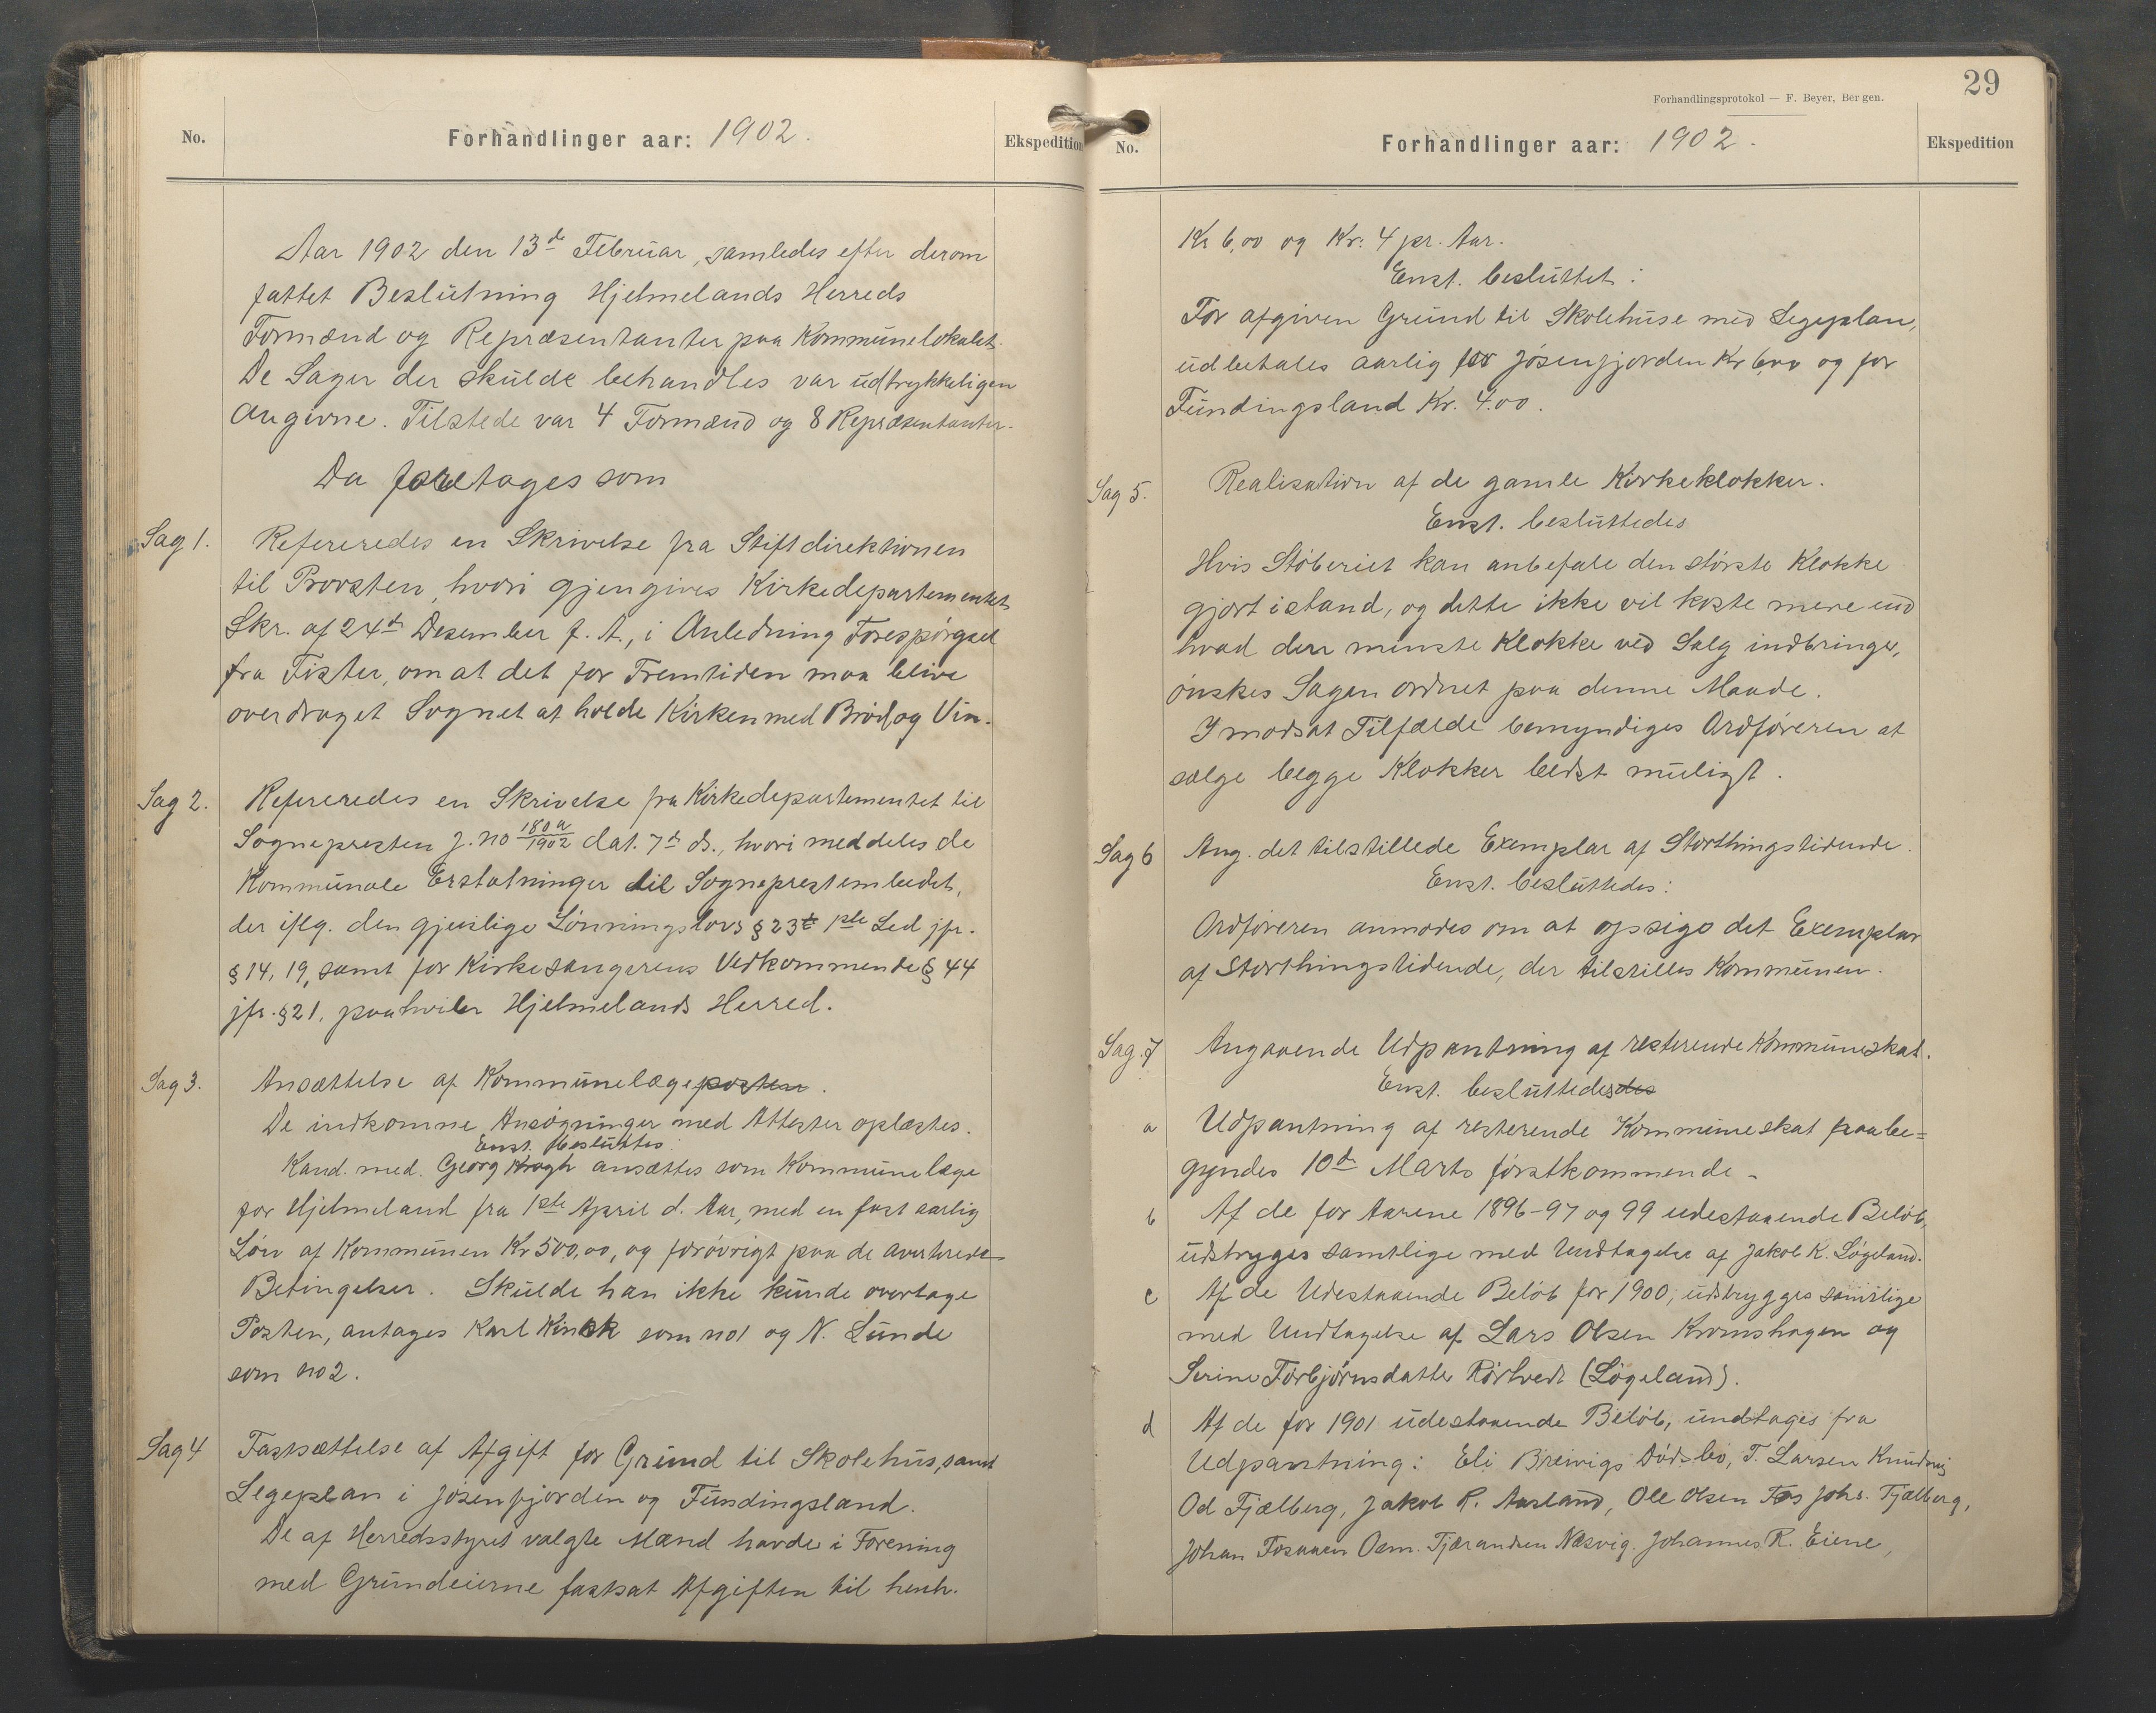 No.
Forhandlinger aar: 1902.
Ekspedition
Aar 1902 den 13de Februar, samledes efter derom
fattet Beslutning Hjelmelands Herreds
Formænd og Repræsentanter paa Kommunelokalet.
De Sager der skulde behandles var udtrykkeligen
Angivne. Tilstede var 4 Formænd og 8 Repræsentanter.
Da foretages som
Sag 1. Refereredes en Skrivelse fra Stiftdirektionen
til Provsten, hvori gjengives Kirkedepartementets
Skr. af 24de Desember f. A., i Anledning Forespørgsel
fra Fister, om at det for Fremtiden maa blive
overdraget Sognet at holde Kirken med Brød og Vin.
Sag 2. Refereredes en Skrivelse fra Kirkedepartementet til
Sognepresten J. no 180a/1902 dat. 7de ds., hvori meddeles de
Kommunale Erstatninger til Sogneprestembedet,
der iflg. den gjeistlige Lønningslovs § 23 1ste Led jfr.
§ 14, 19, samt for Kirkesangerens Vedkommende § 44
jfr. § 21, paahviler Hjelmelands Herred.
Sag 3. Ansættelse af Kommunelægeposten.
De indkomne Ansøgninger med Attester oplæstes.
Enst. besluttes:
Kand. med. Georg Krogh ansættes som Kommunelæge
for Hjelmeland fra 1ste April d. Aar, med en fast aarlig
Løn af Kommunen Kr 500,00, og forøvrigt paa de averterede
Betingelser. Skulde han ikke kunde overtage
Posten, antages Karl Kinck som no1 og N. Lunde
som no2.
Sag 4 Fastsættelse af Afgift for Grund til Skolehus, samt
Legeplan i Jøsenfjorden og Fundingsland.
De af Herredsstyret valgte Mænd havde i Forening
med Grundeierne fastsat Afgiften til henh.
29
Forhandlingsprotokol — F. Beyer, Bergen.
No.
Forhandlinger aar: 1902.
Ekspedition
Kr 6,00 og Kr. 4 pr. Aar.
Enst. besluttet:
For afgiven Grund til Skolehuse med Legeplan,
udbetales aarlig for Jøsenfjorden Kr 6,00 og for
Fundingsland Kr. 4.00.
Sag 5. Realisation af de gamle Kirkeklokker.
Enst. besluttedes
Hvis Støberiet kan anbefale den største Klokke
gjort istand, og dette ikke vil koste mere end
hvad den minste Klokke ved Salg indbringer,
ønskes Sagen ordnet paa denne Maade.
I modsat Tilfælde bemyndiges Ordføreren at
sælge begge Klokker bedst muligt.
Sag 6 Ang. det tilstillede Exemplar af Storthingstidende.
Enst. besluttedes:
Ordføreren anmodes om at opsige det Exemplar
af Storthingstidende, der tilstilles Kommunen.
Sag. 7 Angaaende Udpantning af resterende Kommuneskat.
Enst. besluttedesdes
a Udpantning af resterende Kommuneskat paabe=
gyndes 10de Marts førstkommende.
b Af de for Aarene 1896-97 og 99 udestaaende Beløb,
udstryges samtlige med Undtagelse af Jakob K. Løgeland.
c Af de Udestaaende Beløb for 1900, udstrygges samtlige
med Undtagelse af Lars Olsen Kromshagen og
Serine Torbjørnsdatter Rørtvedt (Løgeland).
d Af de for 1901 udestaaende Beløb, undtages fra
Udpantning: Eli Breivigs Dødsbo, T. Larsen
Od Fjælberg, Jakob R. Aasland, Ole Olsen Johs. Tjælberg,
Johan Fosaaen Osm. Tjerandsen Næsvig. Johannes R. Eiene,